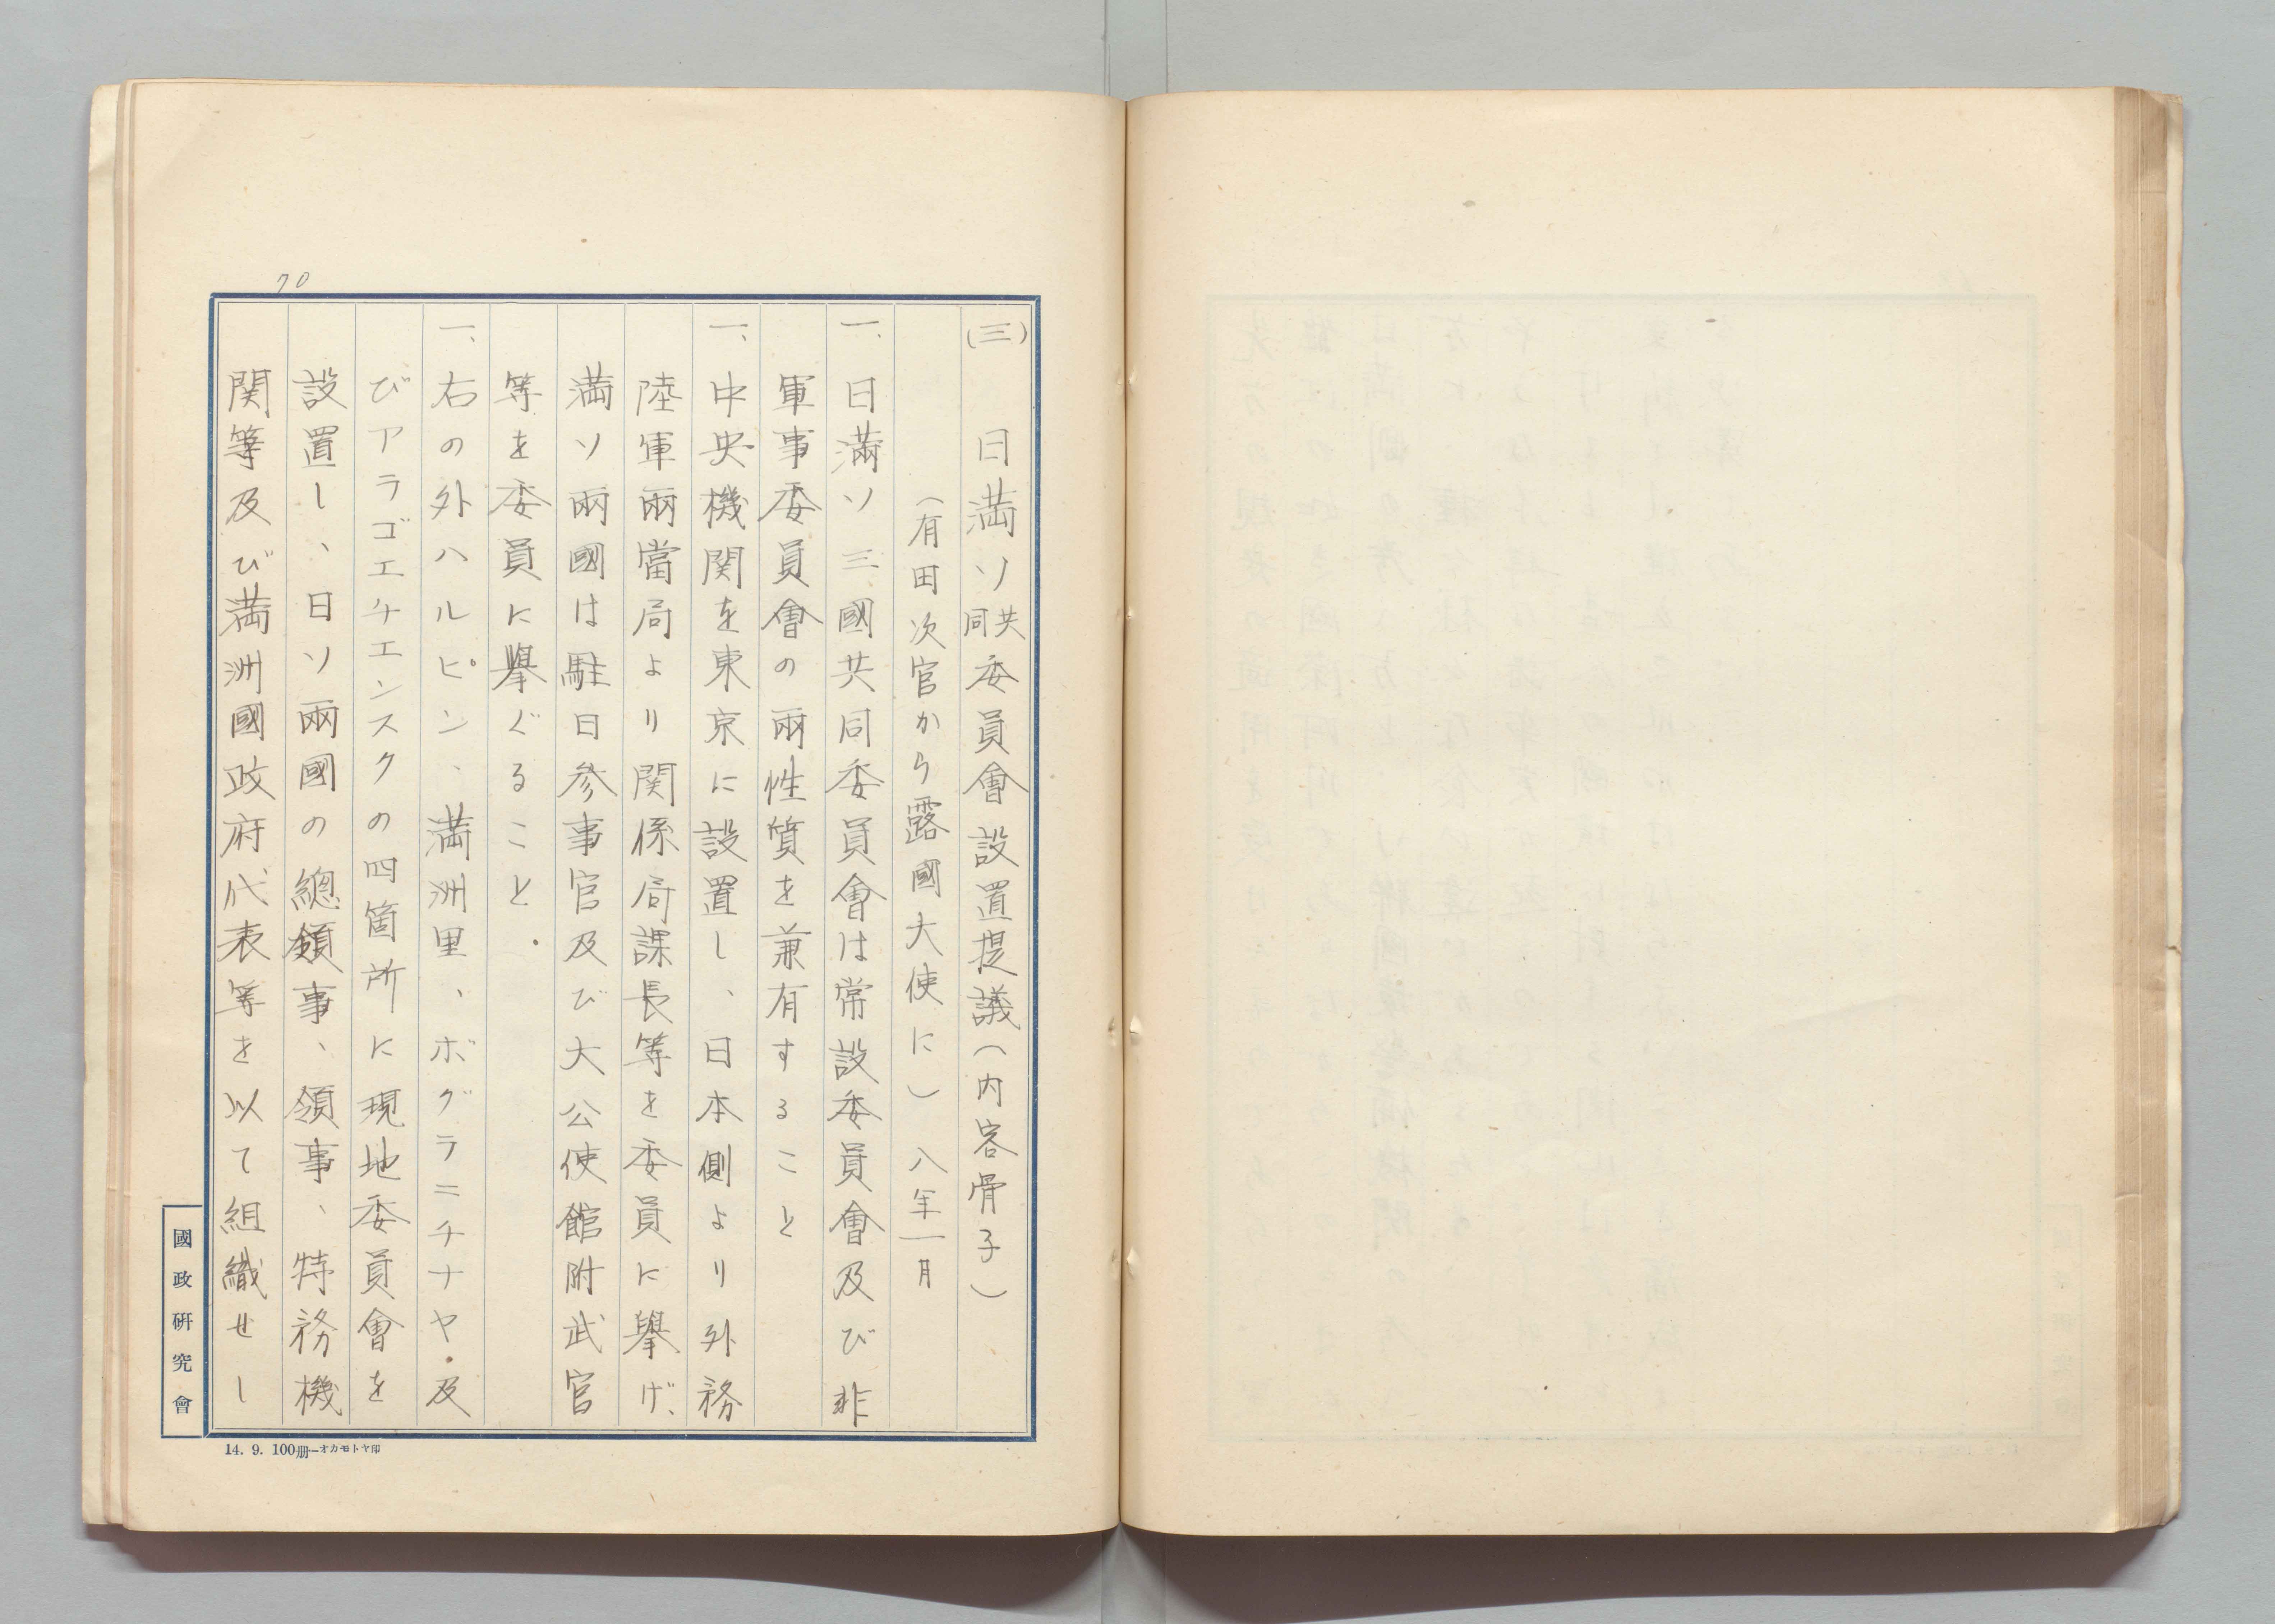 70
(三)日満ソ共同委員會設置提議(内容骨子)
(有田次官から露國大使に)八年一月
一、日満ソ三國共同委員會は常設委員會及び非
軍事委員會の兩性質を兼有すること
一、中央機関を東京に設置し、日本側より外務
陸軍兩當局より関係局課長等を委員に擧げ、
満ソ兩國は駐日参事官及び大公使館附武官
等を委員に擧ぐること.
一、右の外ハルピン、満洲里、ボグラニチナヤ・及
びアラゴエチエンスクの四箇所に現地委員會を
設置し、日ソ兩國の總領事、領事、特務機
関等及び満洲國政府代表等を以て組織せし
國政研究會
14. 9. 100册—オカモトヤ印